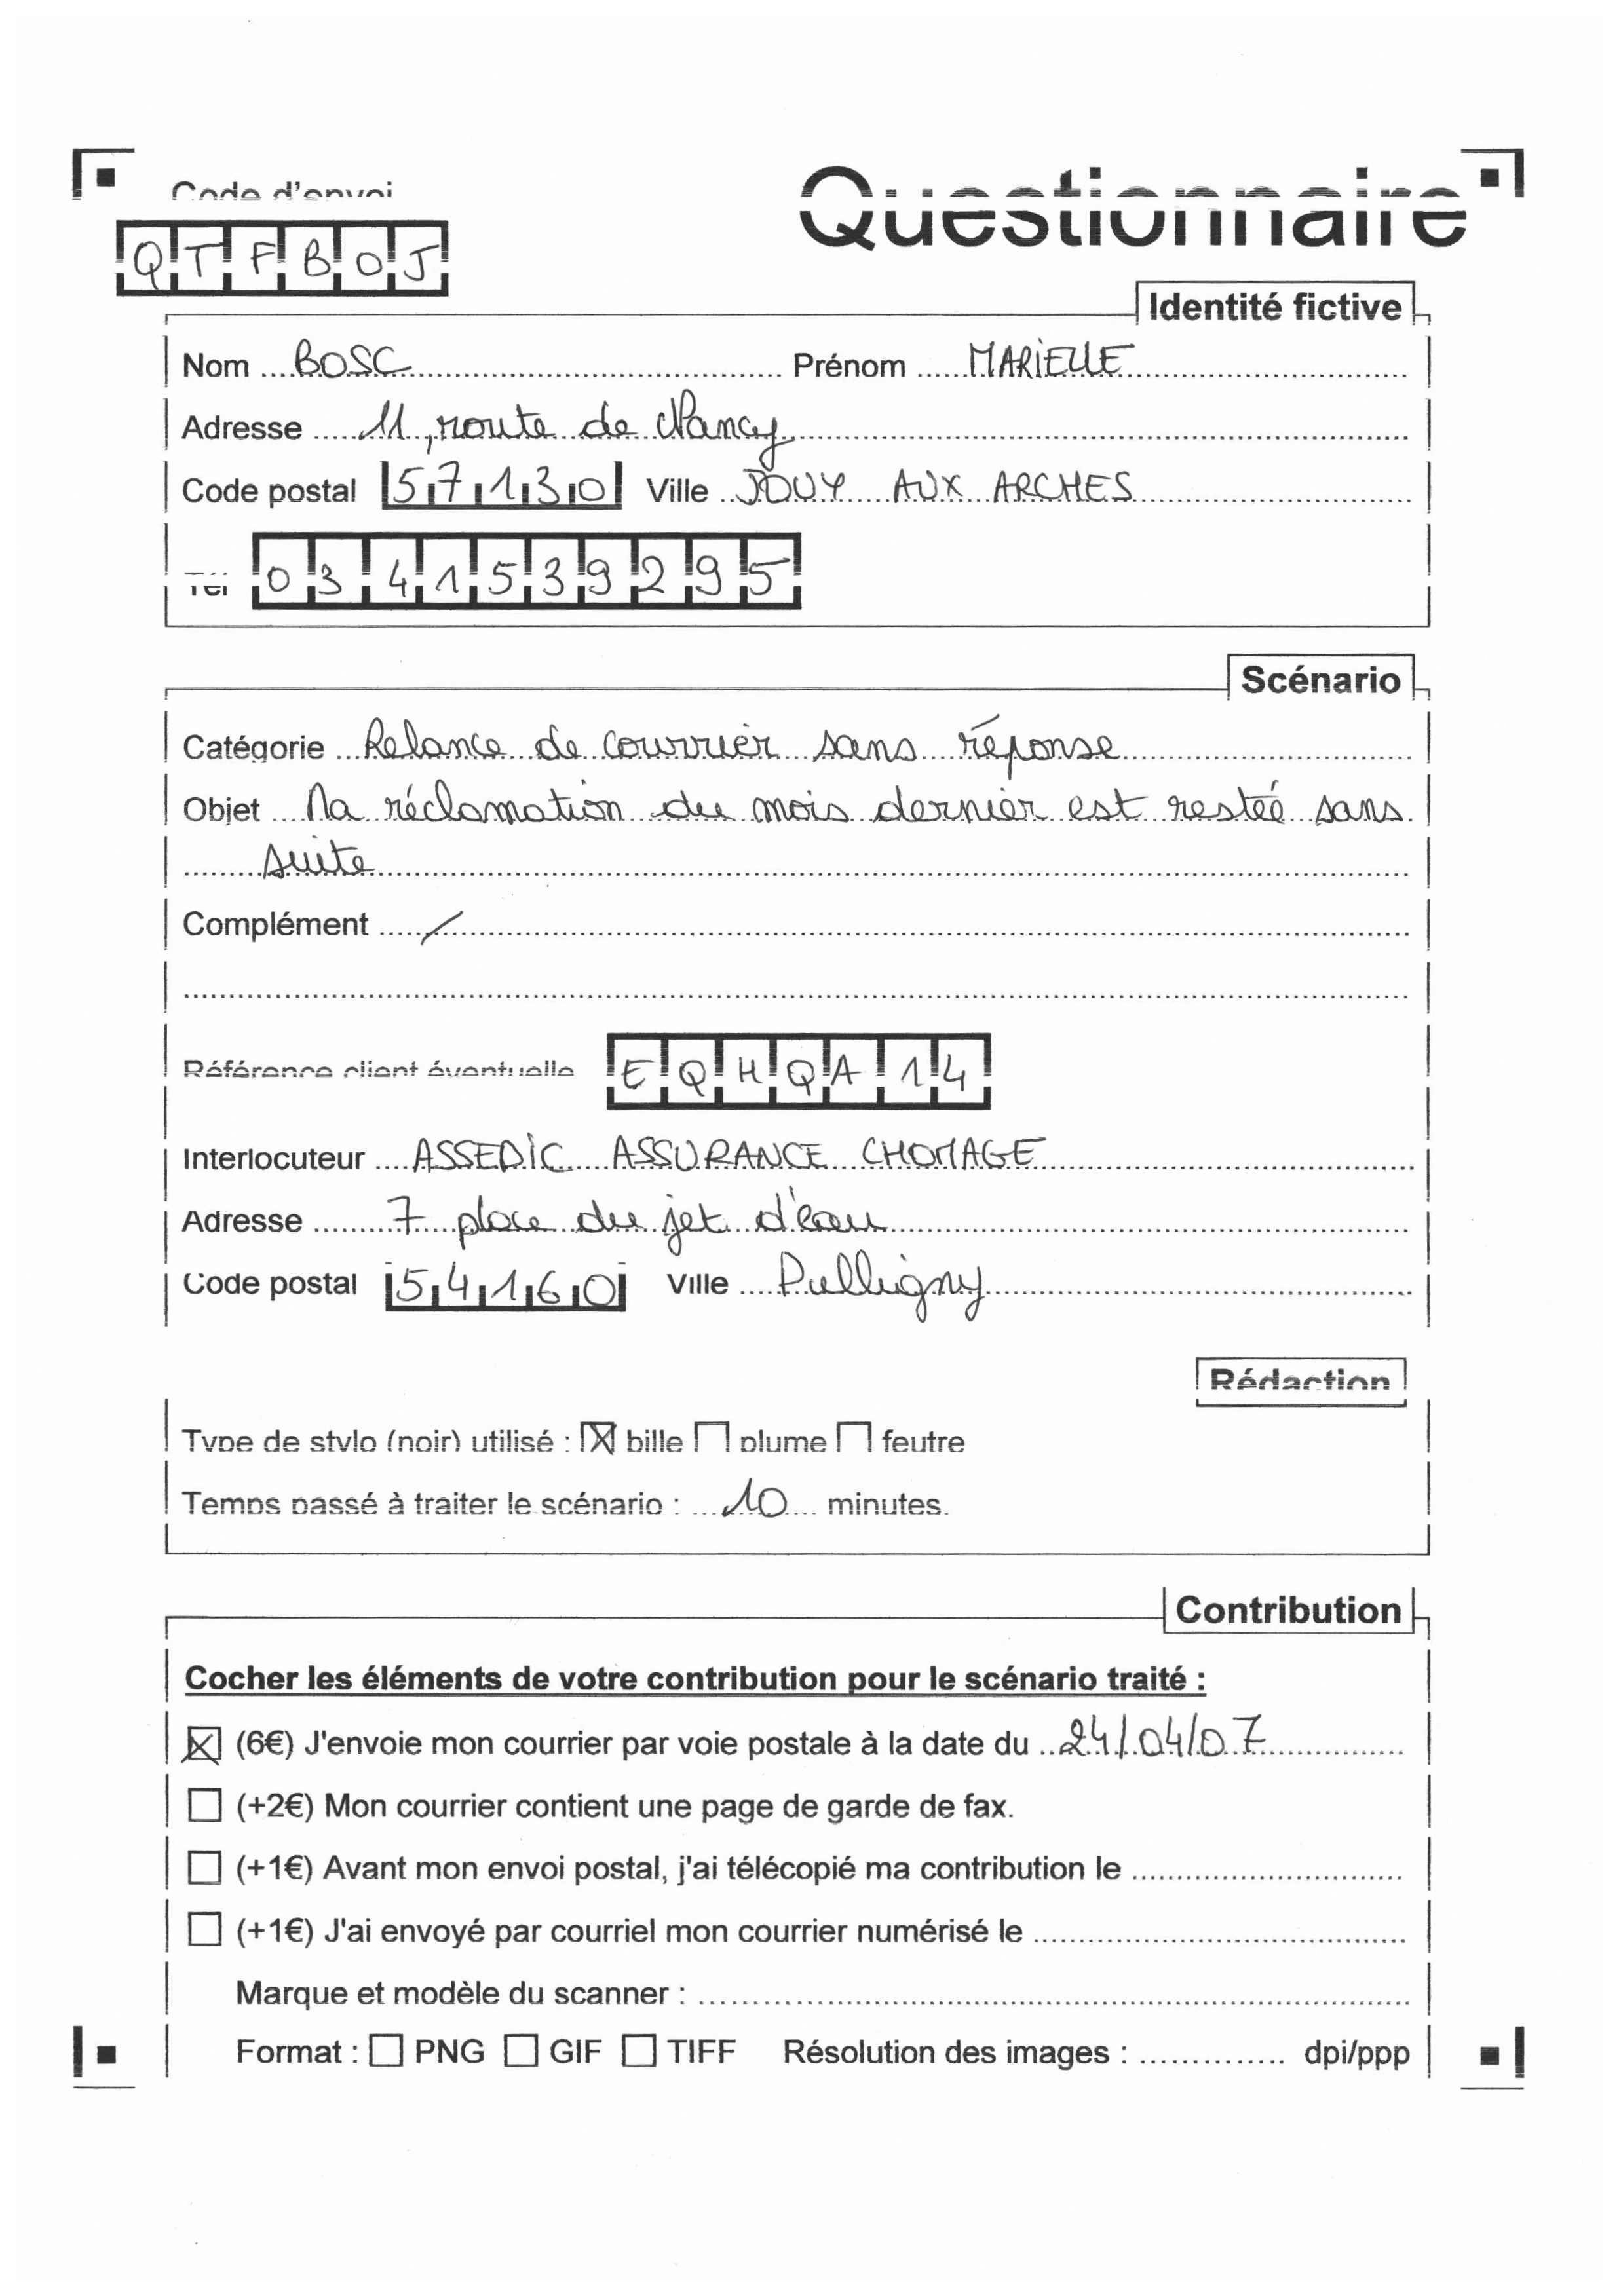 Code d'envoi
Questionnaire
QTFBOJ
Identité fictive
Nom BOSC Prénom MARIELLE
Adresse 11, route de Nancy
Code postal 57130 Ville JOUY AUX ARCHES
Tél 0341539295
Scénario
Catégorie Relance de courrier sans réponse
Objet Ma réclamation du mois dernier est restée sans
suite
Complément /
Référence client éventuelle EQHQA14
Interlocuteur ASSEDIC ASSURANCE CHOMAGE
Adresse 7 place du jet d'eau
Code postal 54160 Ville Pulligny
Rédaction
Type de stylo (noir) utilisé : ☒ bille ☐ plume ☐ feutre
Temps passé à traiter le scénario : 10 minutes.
Contribution
Cocher les éléments de votre contribution pour le scénario traité :
☒ (6€) J'envoie mon courrier par voie postale à la date du 24/04/07
☐ (+2€) Mon courrier contient une page de garde de fax.
☐ (+1€) Avant mon envoi postal, j'ai télécopié ma contribution le
☐ (+1€) J'ai envoyé par courriel mon courrier numérisé le
Marque et modèle du scanner :
Format : ☐ PNG ☐ GIF ☐ TIFF Résolution des images : dpi/ppp